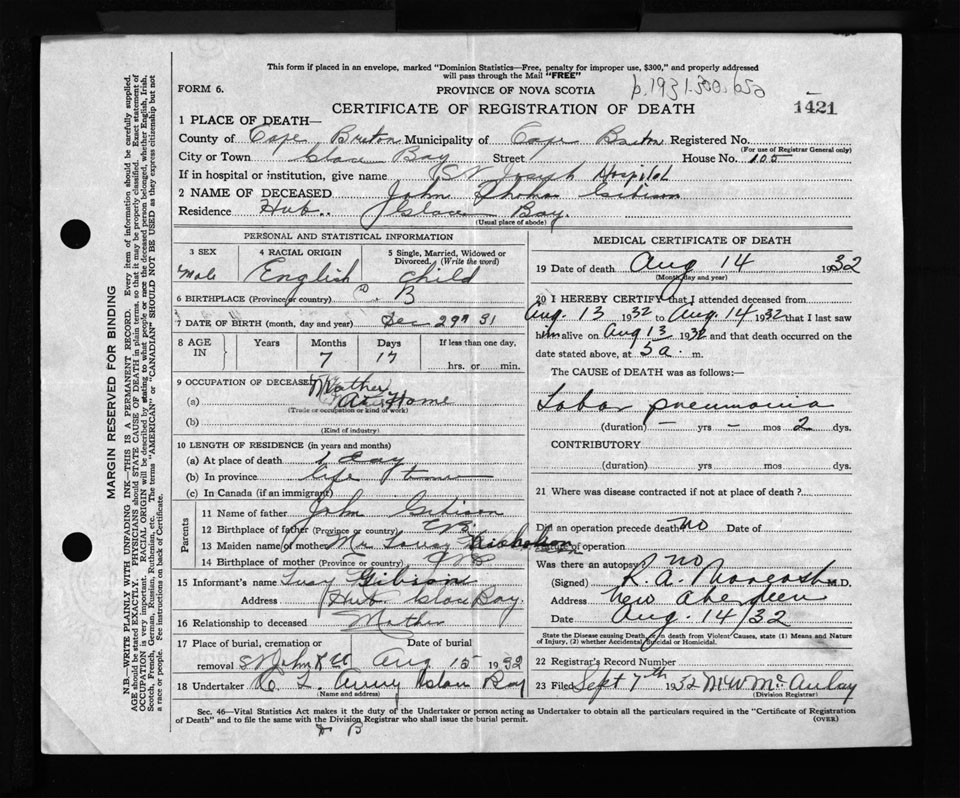 This form if placed in an envelope, marked "Dominion Statistics—Free, penalty for improper use, $300," and properly addressed
will pass through the Mail "FREE"
FORM 6.
PROVINCE OF NOVA SCOTIA
b.1931-300-650
CERTIFICATE OF REGISTRATION OF DEATH
1421
1 PLACE OF DEATH—
County of Cape Breton Municipality of Cape Breton Registered No.
(For use of Registrar General only)
City or Town Glace Bay Street House No. 105
If in hospital or institution, give name St Joseph Hospital
2 NAME OF DECEASED John Thomas Gibison
Residence Hub. Glace Bay.
(Usual place of abode)
PERSONAL AND STATISTICAL INFORMATION
3 SEX
Male
4 RACIAL ORIGIN
English
5 Single, Married, Widowed or Divorced. (Write the word)
Child
6 BIRTHPLACE (Province or country) B
7 DATE OF BIRTH (month, day and year) Dec 29th 31
8 AGE IN
Years
Months
7
Days
17
If less than one day,
hrs. or min.
9 OCCUPATION OF DECEASED Mother
(a) At Home
(Trade or occupation or kind of work)
(b)
(Kind of industry)
10 LENGTH OF RESIDENCE (in years and months)
(a) At place of death 1 day
(b) In province life time
(c) In Canada (if an immigrant)
Parents
11 Name of father John Gibison
12 Birthplace of father (Province or country) CB
13 Maiden name of mother Nicholson
14 Birthplace of mother (Province or country)
15 Informant's name Gibison
Address Hub Glace Bay.
16 Relationship to deceased Mother
17 Place of burial, cremation or removal St John
Date of burial Aug 15 1932
18 Undertaker Bay
(Name and address)
MEDICAL CERTIFICATE OF DEATH
19 Date of death Aug 14 1932
(Month, day and year)
20 I HEREBY CERTIFY that I attended deceased from
Aug. 13 1932 to Aug. 14 1932 that I last saw
him alive on Aug 13 1932 and that death occurred on the
date stated above, at 5 a. m.
The CAUSE of DEATH was as follows:—
Lobar pneumonia
(duration) — yrs — mos 2 dys.
CONTRIBUTORY
(duration) yrs. mos. dys.
21 Where was disease contracted if not at place of death?
Did an operation precede death no Date of
Nature of operation
Was there an autopsy no
(Signed) R. A. M.D.
Address New Aberdeen
Date Aug. 14/32
State the Disease causing Death, or in death from Violent Causes, state (1) Means and Nature
of Injury, (2) whether Accidental, Suicidal or Homicidal.
22 Registrar's Record Number
23 Filed Sept 7th 1932 M W McAulay
(Division Registrar)
Sec. 46—Vital Statistics Act makes it the duty of the Undertaker or person acting as Undertaker to obtain all the particulars required in the "Certificate of Registration
of Death" and to file the same with the Division Registrar who shall issue the burial permit.
(OVER)
MARGIN RESERVED FOR BINDING
N.B.—WRITE PLAINLY WITH UNFADING INK—THIS IS A PERMANENT RECORD. Every item of information should be carefully supplied.
AGE should be stated EXACTLY. PHYSICIANS should STATE CAUSE OF DEATH in plain terms, so that it may be properly classified. Exact statement of
OCCUPATION is very important. RACIAL ORIGIN will be described by stating to what people or race the deceased person belonged, whether English, Irish,
Scotch, French, German, Russian, Ruthenian, etc. The terms "AMERICAN" or "CANADIAN" SHOULD NOT BE USED as they express citizenship but not
a race or people. See instructions on back of Certificate.